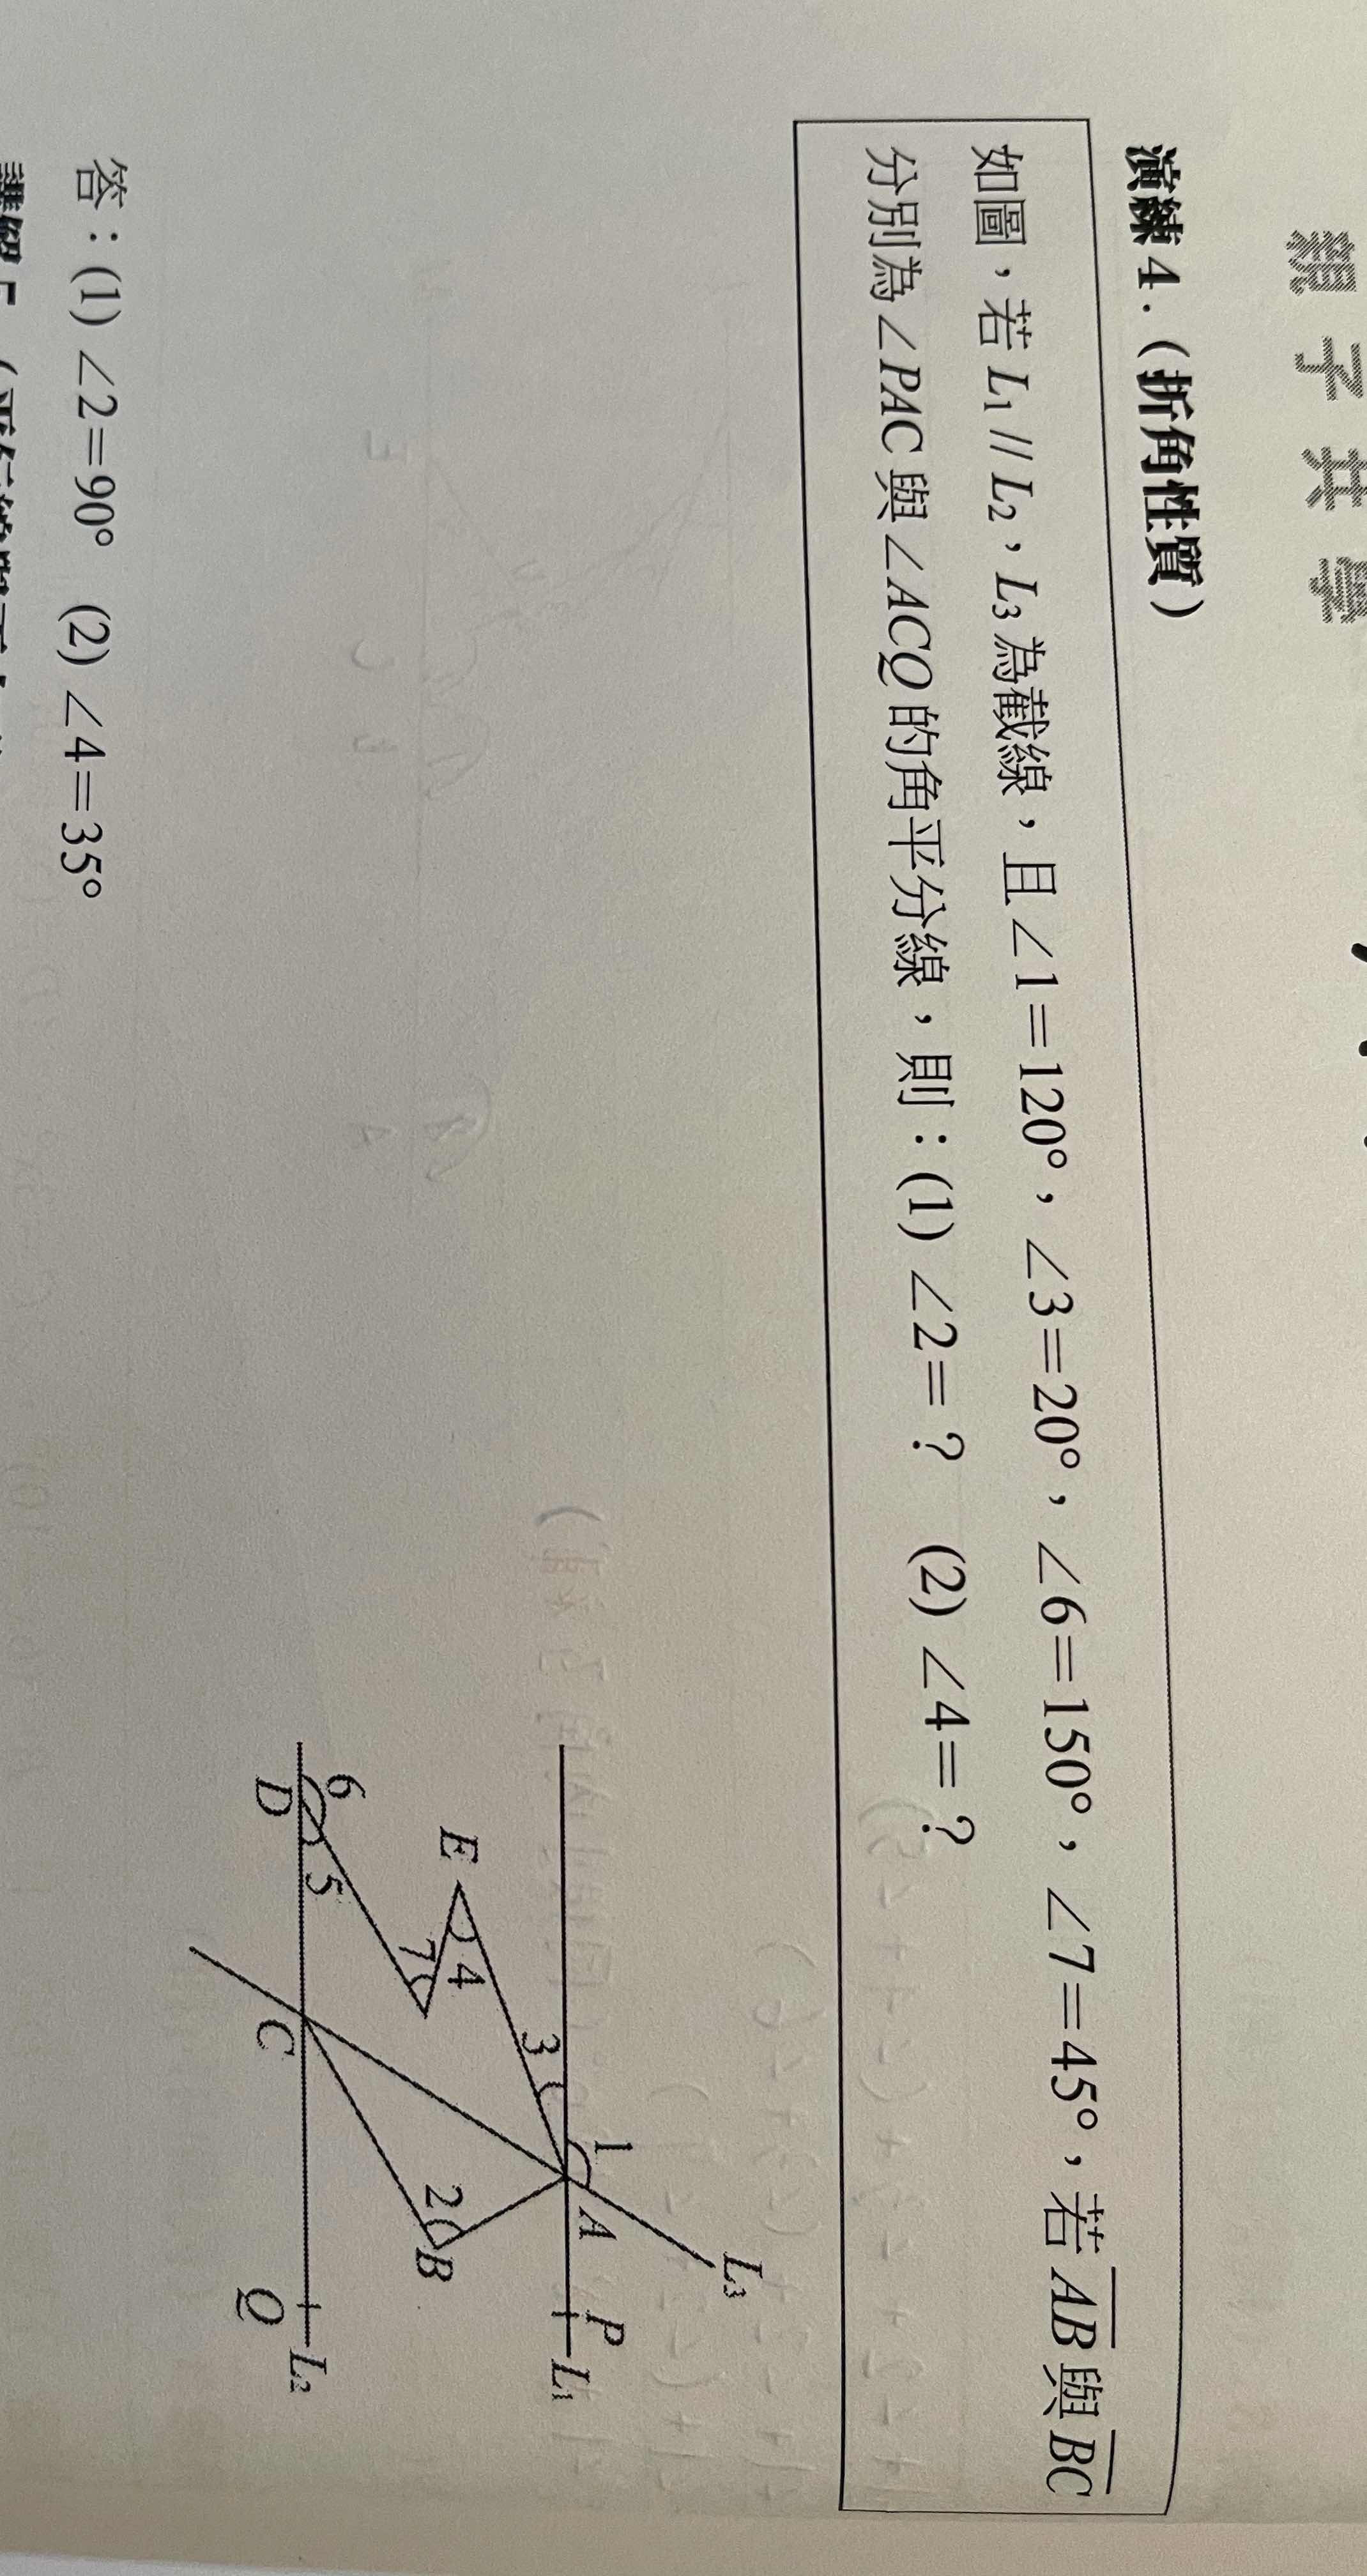 親子共學
演練 4.(折角性質)
如圖,若 L₁ // L₂,L₃ 為截線,且∠1=120°,∠3=20°,∠6=150°,∠7=45°,若 A̅B̅ 與 B̅C̅
分別為∠PAC 與∠ACQ 的角平分線,則:(1) ∠2=? (2) ∠4=?
L₃
1
A
P
L₁
3
E
4
7
2
B
6
5
D
C
Q
L₂
答:(1) ∠2=90° (2) ∠4=35°